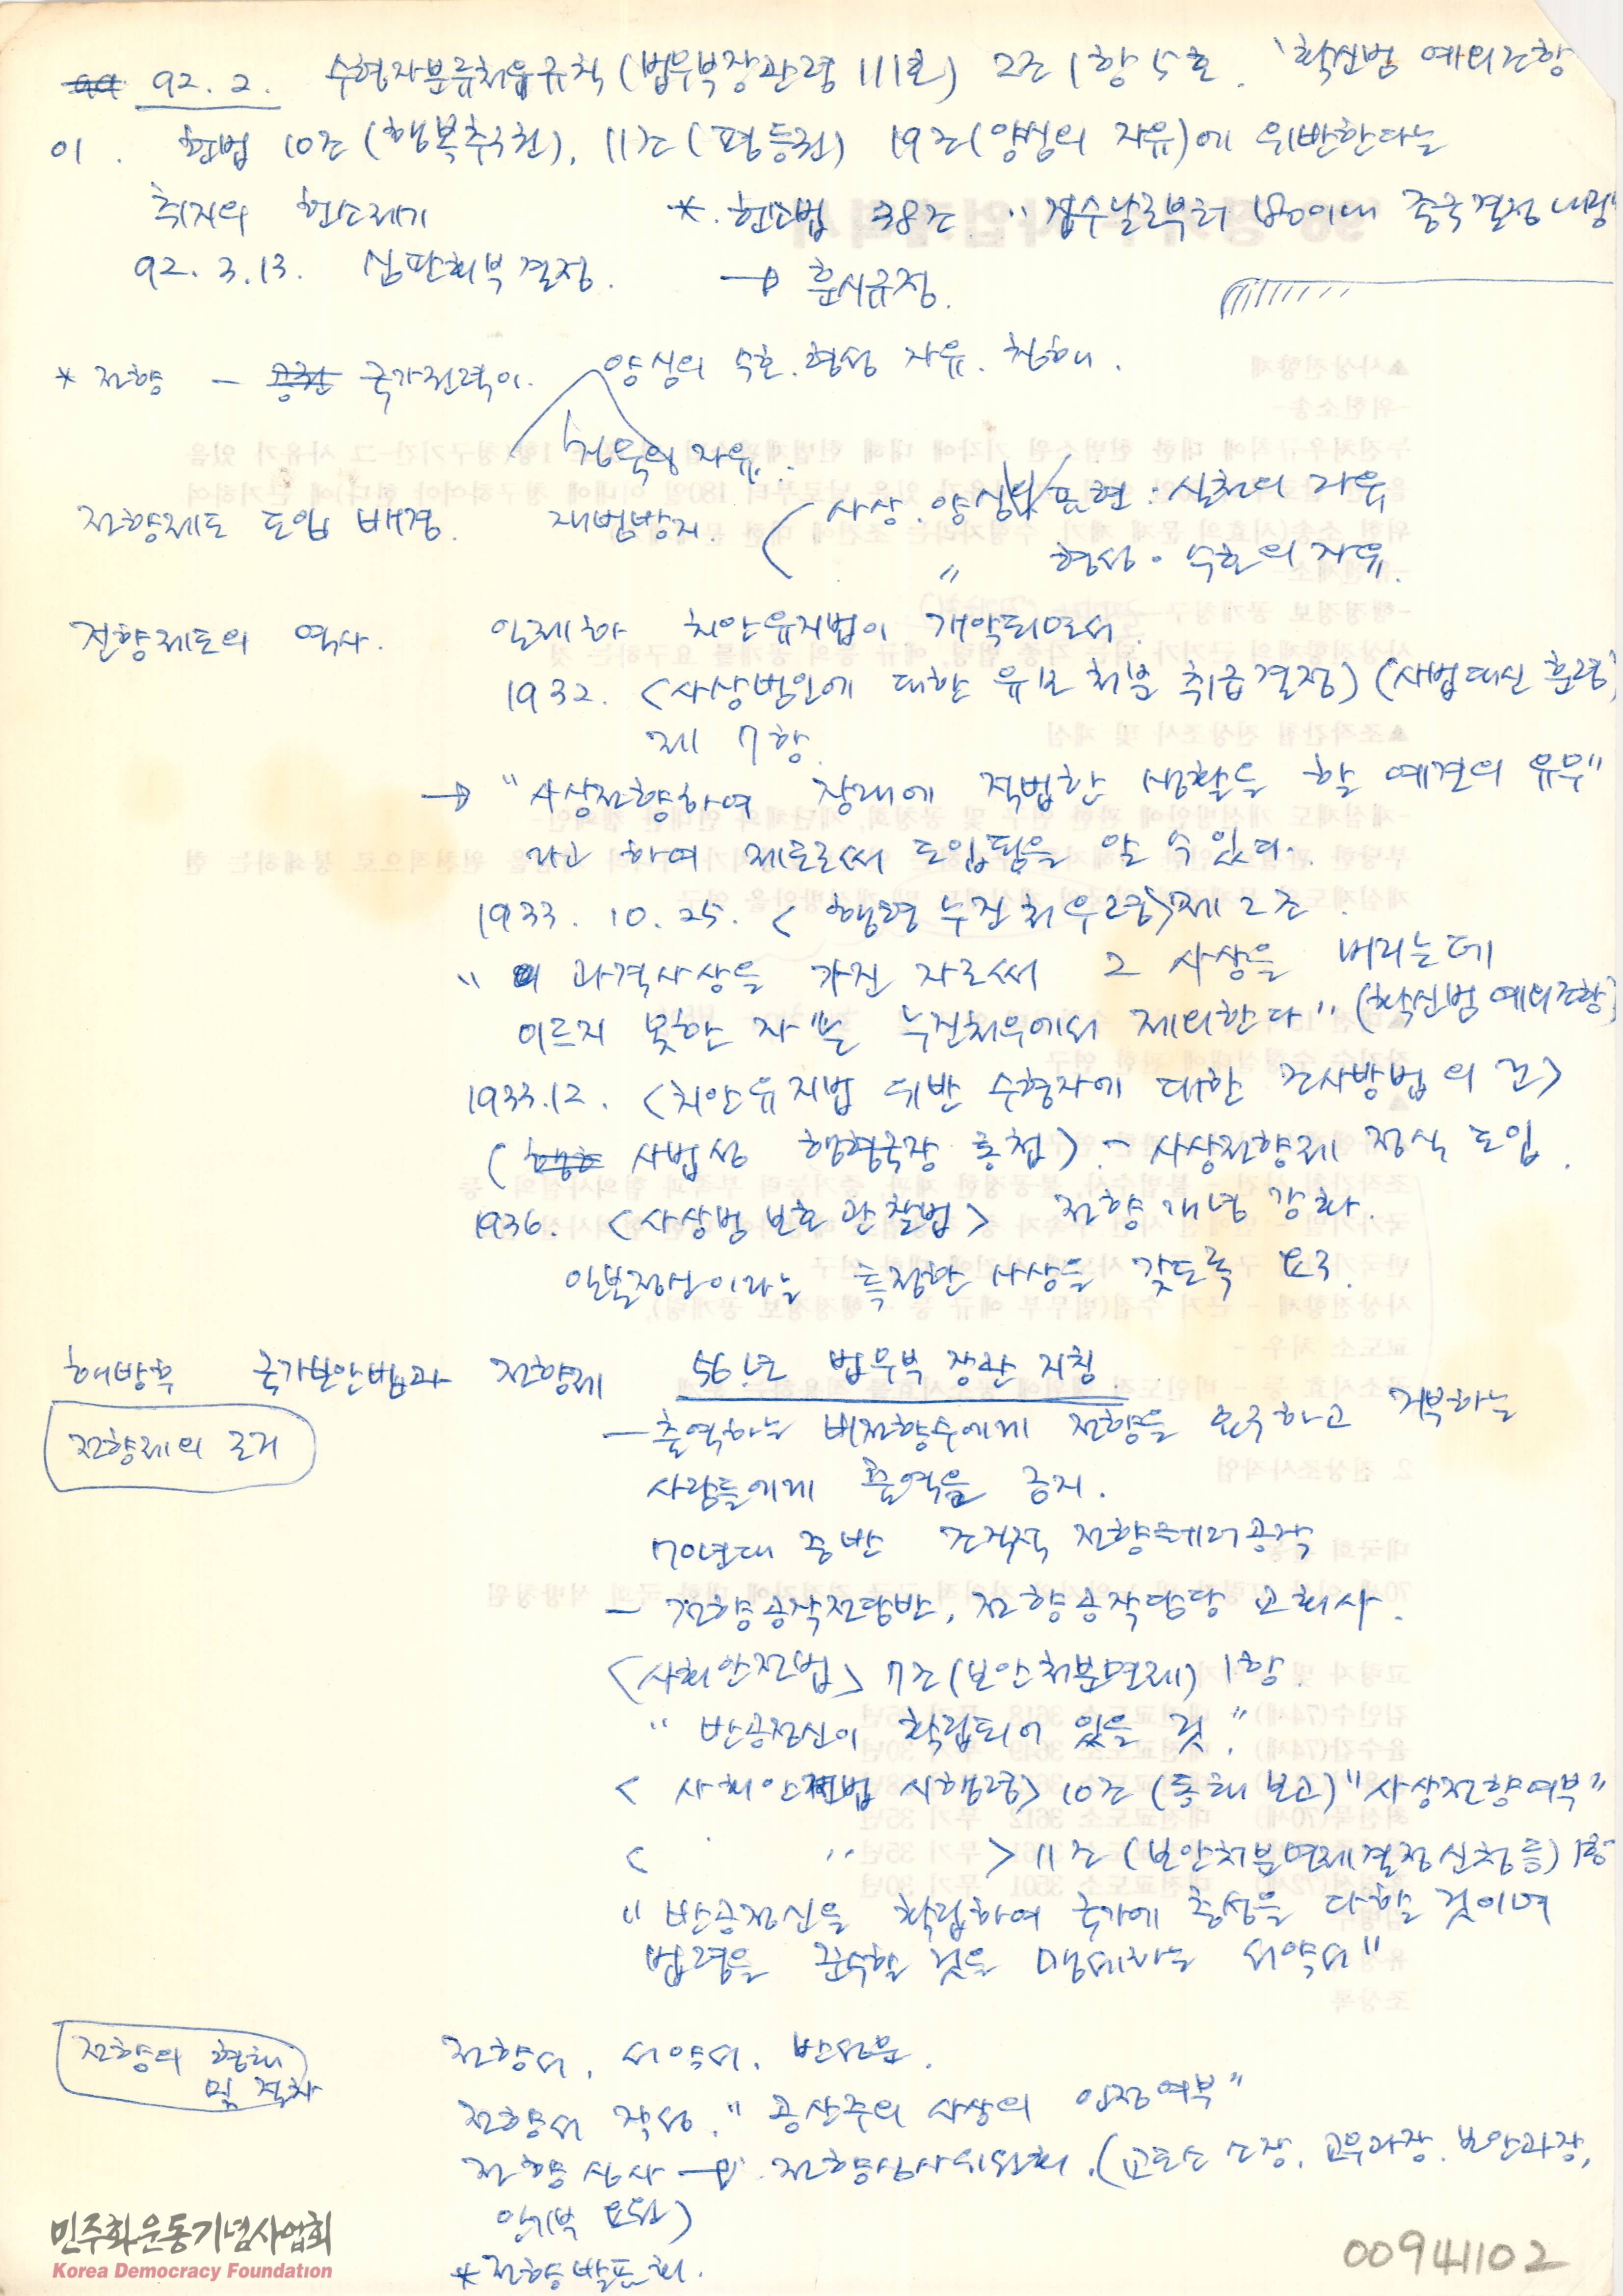 92. 2. 수형자분류처우규칙(법무부장관령 111호) 2조 1항 5호. '확신범 예외조항
이. 헌법 10조(행복추구권), 11조(평등권) 19조(양심의 자유)에 위반한다는
취지의 헌소제기 * 헌소법 38조 "접수날로부터 180이내 종국결정내림"
92. 3. 13. 심판회부결정. → 훈시규정.
* 전향 - 국가권력이. 양심의 수호.형성 자유. 침해.
침묵의 자유.
전향제도 도입 배경. 재범방지. (사상.양심의 표현.실천의 자유
" 형성.수호의 자유.
전향제도의 역사. 일제하 치안유지법이 개악되면서.
1932. <사상범인에 대한 유보처분 취급결정> (사법대신 훈령)
제 7항.
→ "사상전향하여 장래에 적법한 생활을 할 예견의 유무"
라고 하여 제도로써 도입됨을 알 수 있다.
1933. 10. 25. <행형누진처우령> 제 2조.
" 과격사상을 가진 자로써 그 사상을 버리는데
이르지 못한 자"를 누진처우에서 제외한다" (확신범 예외조항)
1933.12. <치안유지법 위반 수형자에 대한 조사방법의 건>
(사법성 행형국장 통첩) - 사상전향제 정식 도입.
1936. <사상범 보호관찰법> 전향개념 강화.
일본정신이라는 특정한 사상을 갖도록 요구.
해방후 국가보안법과 전향제 56년 법무부 장관 지침.
전향제의 근거
- 출역하는 비전향수에게 전향을 요구하고 거부하는
사람들에게 출역을 금지.
70년대 중반 조직적 전향테러공작
- 전향공작전담반, 전향공작담당 교회사.
<사회안전법> 7조(보안처분면제) 1항.
" 반공정신이 확립되어 있을 것."
< 사회안전법 시행령> 10조 (동태 보고) "사상전향여부"
< " > 11조 (보안처분면제결정신청등) 1항
" 반공정신을 확립하여 국가에 충성을 다할 것이며
법령을 준수할 것을 맹세하는 서약서"
전향의 형태
및 절차
전향서, 서약서, 반성문.
전향서 작성. "공산주의 사상의 인정여부"
전향심사 → 전향심사위원회. (교도소 소장. 교무과장. 보안과장,
안기부 요원)
* 전향발표회.
민주화운동기념사업회
Korea Democracy Foundation
00941102